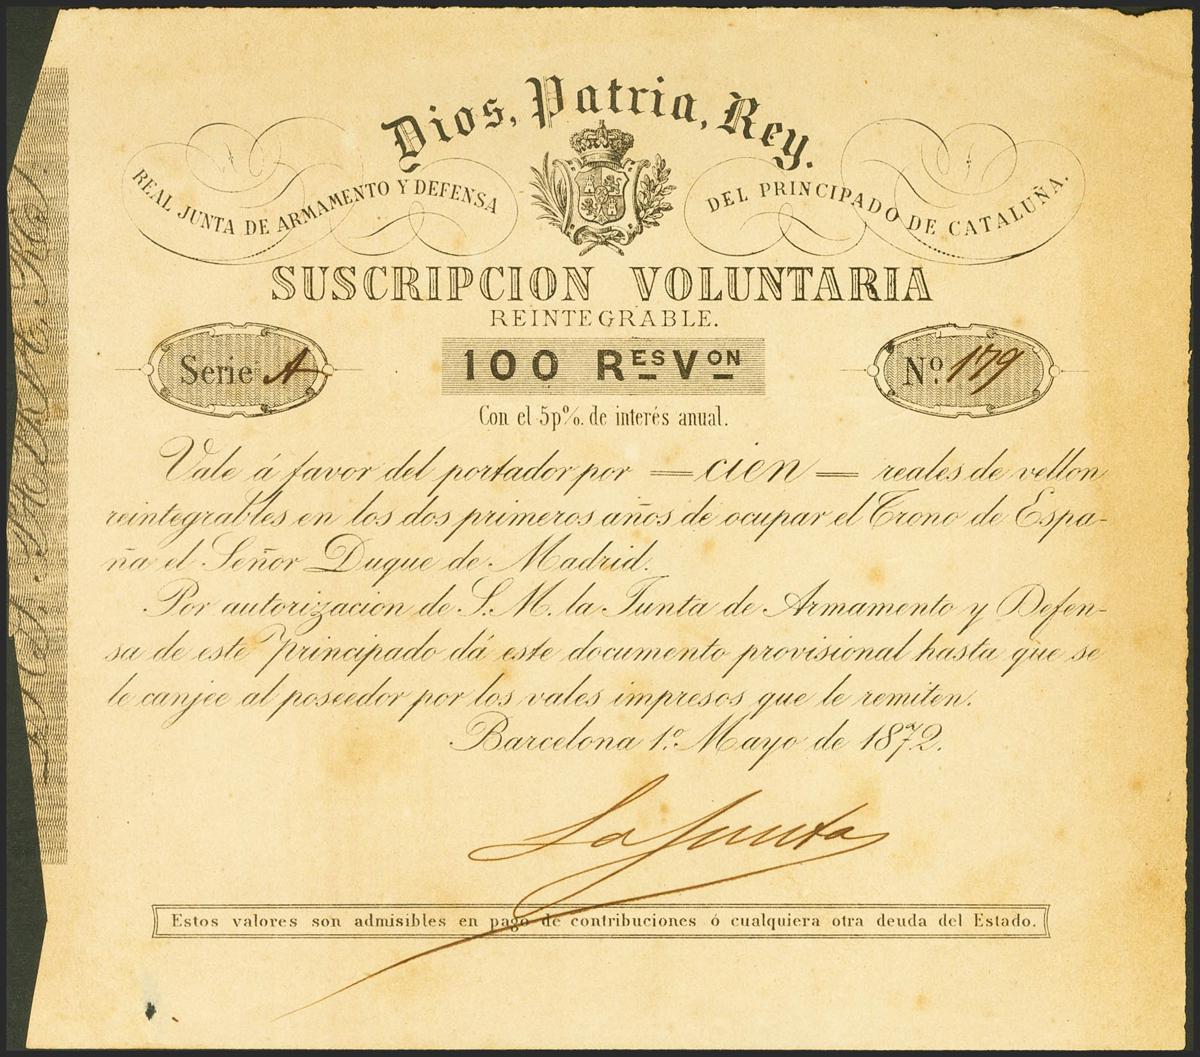 Dios, Patria, Rey.
REAL JUNTA DE ARMAMENTO Y DEFENSA DEL PRINCIPADO DE CATALUÑA.
SUSCRIPCION VOLUNTARIA
REINTEGRABLE.
Serie A
100 Rᴱˢ Vᴼᴺ
Nº 179
Con el 5 p%. de interés anual.
Vale á favor del portador por = cien = reales de vellon
reintegrables en los dos primeros años de ocupar el Trono de Espa-
ña el Señor Duque de Madrid.
Por autorizacion de S. M. la Junta de Armamento y Defen-
sa de este Principado dá este documento provisional hasta que se
le canjee al poseedor por los vales impresos que le remiten.
Barcelona 1º Mayo de 1872.
La Junta
Estos valores son admisibles en pago de contribuciones ó cualquiera otra deuda del Estado.